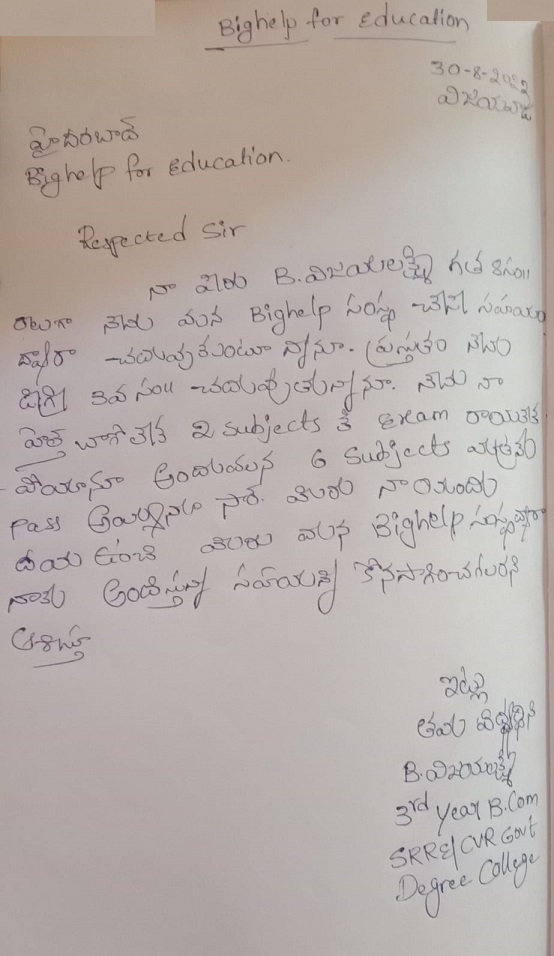 Bighelp for Education
30-8-2022
విజయవాడ
హైదరబాద్
Bighelp for Education.
Respected Sir
నా పేరు B.విజయలక్ష్మి గత 8సం॥
రాలుగా నేను మన Bighelp సంస్థ చేసే సహాయం
ద్వారా చదువుకుంటూ న్నాను. ప్రస్తుతం నేను
డిగ్రీ 3వ సం॥ చదువుతున్నాను. నేను నా
హెల్త్ బాగోలేక 2 subjects కి Exam రాయలేక
పోయాను అందువలన 6 Subjects మాత్రమే
Pass అయ్యాను సార్. మీరు నా యందు
దయ ఉంచి మీరు మన Bighelp సంస్థ ద్వారా
నాకు అందిస్తున్న సహాయన్ని కొనసాగించగలరని
ఆశిస్తూ
ఇట్లు
తమ విద్యార్థిని
B.విజయలక్ష్మి
3rd Year B.Com
SRR&CVR Govt
Degree College